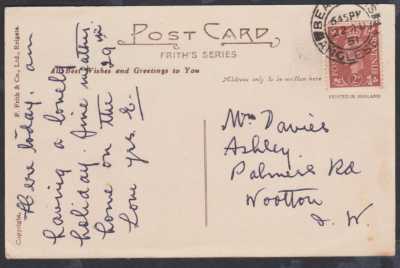 POST CARD
FRITH'S SERIES
All Best Wishes and Greetings to You
Address only to be written here
Copyright. F. Frith & Co., Ltd., Reigate.
PRINTED IN ENGLAND
645PM
51
ANGLESEY
Here today. am
having a lovely
holiday. fine weather.
home on the 29th
Love yrs E.
Mrs Davies
Ashley
Palmers Rd
Wootton
I. W.